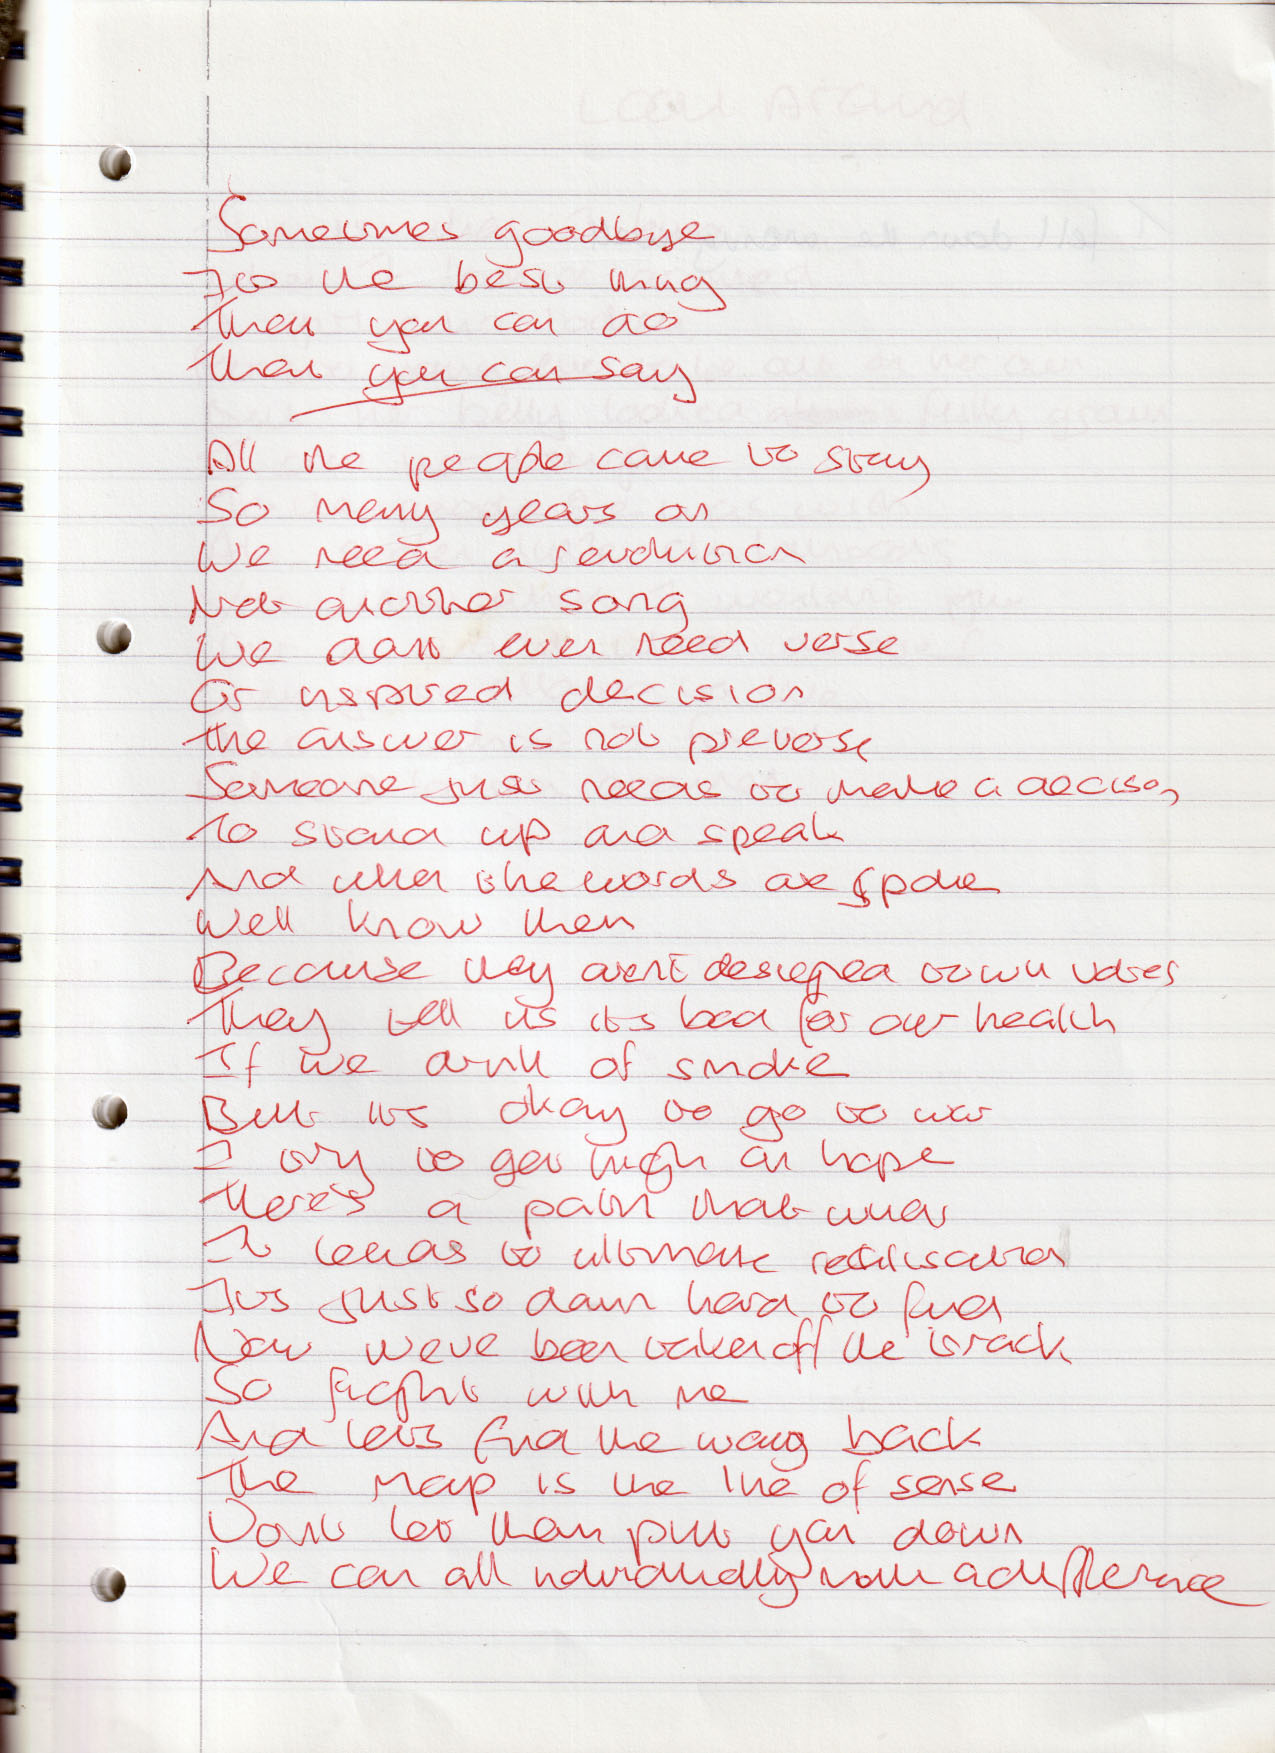 Sometimes goodbye
Its the best thing
That you can do
That you can say
All the people came to stay
So many years on
We need a revolution
Not another song
We dont even need verse
Or inspired decision
The answer is not preverse
Someone just needs to make a decison
To stand up and speak
And when the words are spoke
Well know them
Because they arent designed to win votes
They tell us its bad for our health
If we drink of smoke
But its okay to go to war
I try to get high on hope
There's a path that winds
It leads to ultimate realisation
Its just so damn hard to find
Now weve been taken off the track
So fight with me
And lets find the way back
The map is the line of sense
Dont let them put you down
We can all individually make a difference